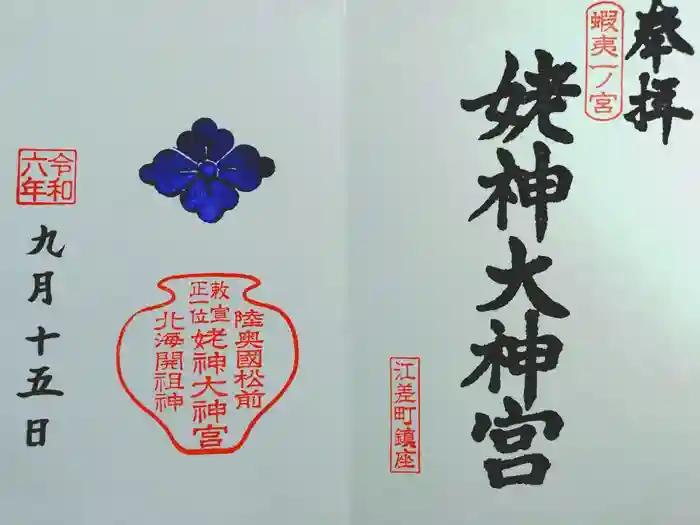 奉拝
蝦夷一ノ宮
姥神大神宮
江差町鎮座
陸奥國松前
敕宣
正一位
姥神大神宮
北海開祖神
令和
六年
九月十五日